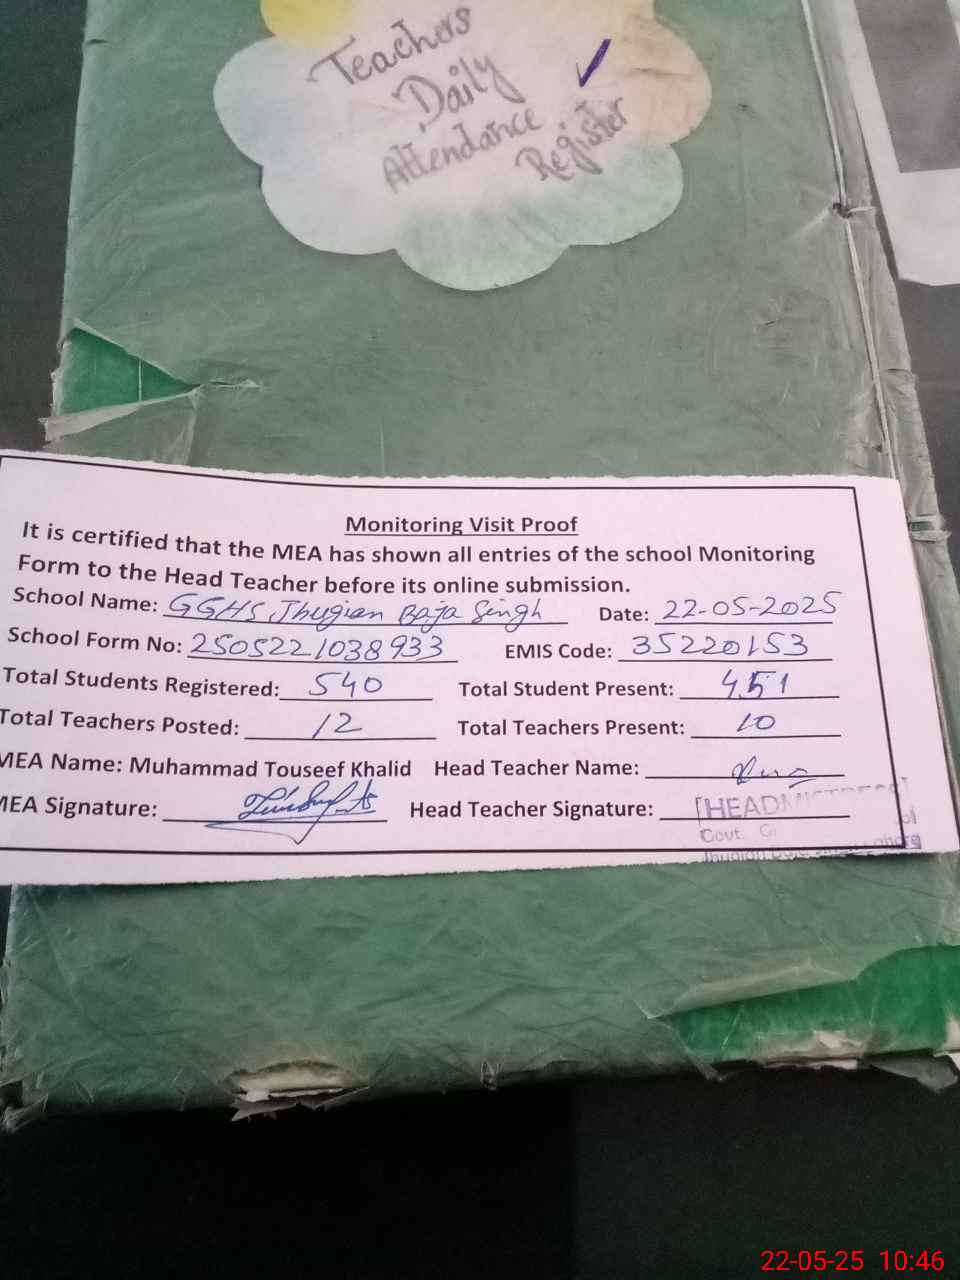 Teachers
Daily
Attendance
Register
Monitoring Visit Proof
It is certified that the MEA has shown all entries of the school Monitoring
Form to the Head Teacher before its online submission.
School Name: GGHS Jhugian Baja Singh Date: 22-05-2025
School Form No: 2505221038933 EMIS Code: 35220153
Total Students Registered: 540 Total Student Present: 451
Total Teachers Posted: 12 Total Teachers Present: 10
MEA Name: Muhammad Touseef Khalid Head Teacher Name:
MEA Signature: Head Teacher Signature:
[HEADMISTRESS]
Govt.
22-05-25 10:46